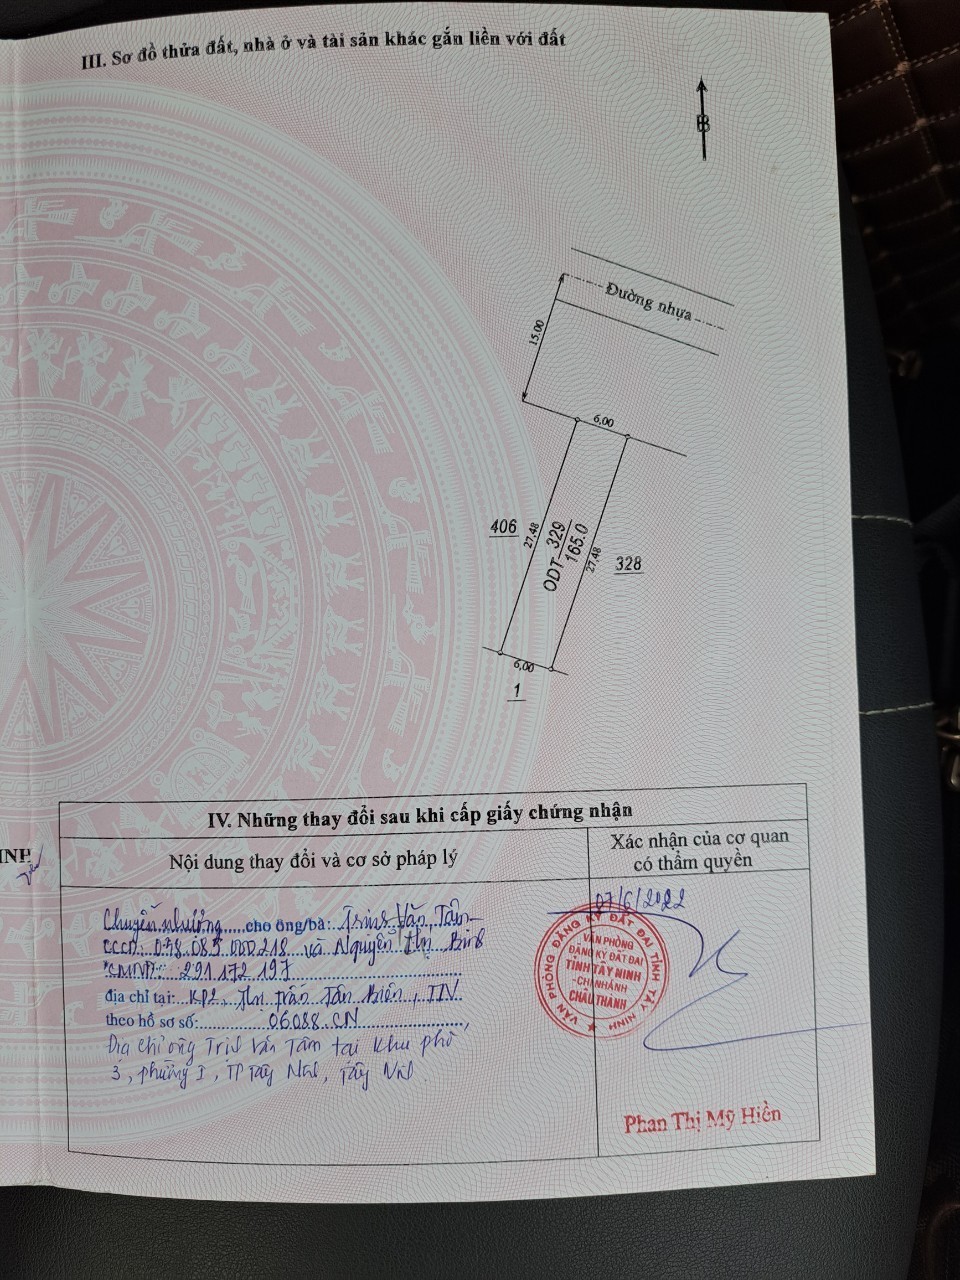 III. Sơ đồ thửa đất, nhà ở và tài sản khác gắn liền với đất
B
Đường nhựa
15.00
6,00
406
27,48
ODT 329
165.0
27,48
328
6,00
1
INH
IV. Những thay đổi sau khi cấp giấy chứng nhận
Nội dung thay đổi và cơ sở pháp lý
Xác nhận của cơ quan
có thẩm quyền
Chuyển nhượng cho ông/bà: Trịnh Văn Tâm
CCCD: 038.083.000218 và Nguyễn Thị Bình
CMND: 291172197
địa chỉ tại: KP2, Thị trấn Tân Biên, TTN
theo hồ sơ số: 06088.CN
Địa chỉ ông Trịnh Văn Tâm tại Khu phố
3, phường I, TP Tây Ninh, Tây Ninh.
07/6/2022
VĂN PHÒNG ĐĂNG KÝ ĐẤT ĐAI TỈNH TÂY NINH
VĂN PHÒNG
ĐĂNG KÝ ĐẤT ĐAI
TỈNH TÂY NINH
-CHI NHÁNH
CHÂU THÀNH
Phan Thị Mỹ Hiền